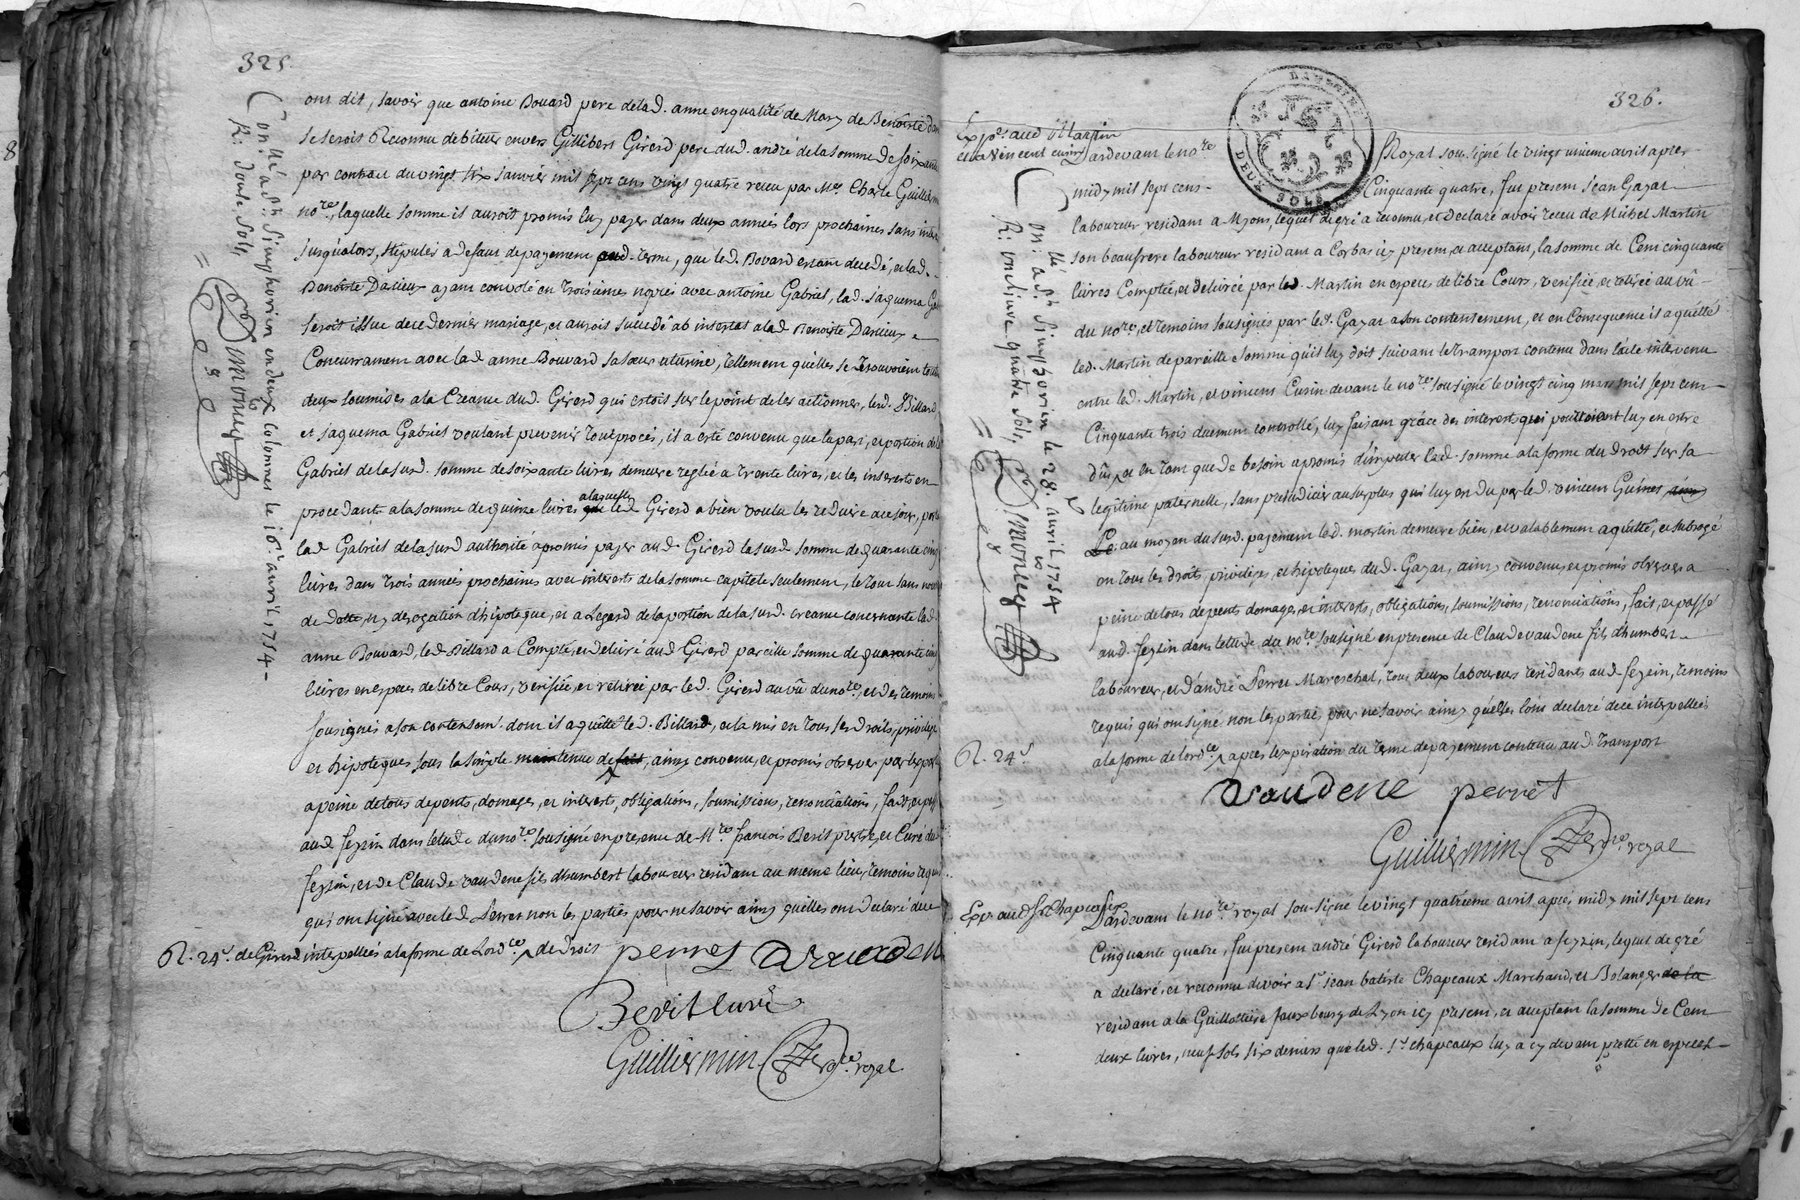 325.
ont dit, savoir que antoine Bouard pere de lad. anne en qualité de Mary de Benoiste
se serois Reconnu debiteur envers Gillibert Girerd pere dud. andré de la somme de soixante
par contract du vingt six janvier mil sept cens vingt quatre receu par Me Charle Guillermin
nore, laquelle somme il auroit promis luy payer dans deux années lors prochaines sans
jusqu'alors, stipulés a defaut de payement aud. terme, que led. Bovard estant decedé, et lad.
Benoiste Darieux ayant convolé en troisiemes nopces avec antoine Gabriel, lad. jaquema
seroit issue de ce dernier mariage, et aurois succedé ab intestat a lad. Benoiste Darieux
Concurrament avec lad. anne Bouvard sa soeur uterine, tellement quelles se trouvoient
deux soumises a la Creance dud. Girerd qui estois sur le point de les actionner, led. Billard
et jaquema Gabriel voulant prevenir tout procés, il a esté convenu que la part, et portion de
Gabriel de la sud. somme de soixante livres demeure reglée a trente livres, et les interests en
procedants a la somme de quinze livres a laquelle led. Girerd a bien voulu les reduire
lad. Gabriel de la sud. authorité a promis payer aud. Girerd la sud. somme de quarante cinq
livres dans trois années prochaines avec interests de la somme capitale seulement, le tout sans
de dette, ny derogation d'hipoteque, et a l'egard de la portion de la sud. creance concernante lad.
anne Bouvard, led. Billard a Compté, et delivré aud. Girerd pareille somme de quarante cinq
livres en especes de libre Cours, verifiée, et retirée par led. Girerd au vû du nore, et des temoins
sousignés a son contentemt. dont il a quitté led. Billard, et la mis en tous ses droits, privileges
et hipoteques sous la simple maintenue de fait, ainsy convenu, et promis observer par les
a peine de tous depents, domages, et interests, obligations, soumissions, renonciations, fait, et passé
aud. feyzin dans l'etude du nore sousigné en presence de Mre francois Berit prestre, et Curé
feyzin, et de Claude vaudene fils d'humbert laboureur residant au meme lieu, temoins requis
qui ont signé avec led. Perret non les parties pour ne savoir ainsy quelles ont declaré de ce
R. 24s. de Girerd interpellées a la forme de l'ordce. de trois
perret
Berit curé
Guilliermin nore. royal
Conllé a St. Simphorien en deux colonnes le 10e avril 1754
R: douze sols,
Moncey
326.
DAUPHINÉ
DEUX SOLS
Expé. aud Martin
et a Vincent curin
Pardevant le nore Royal sousigné le vingt unieme avril apres
midy mil sept cens Cinquante quatre, fut present jean Gayat
laboureur residant a Myons, lequel de gré a reconnu, et declaré avoir receu de Michel Martin
son beaufrere laboureur residant a Corbas icy present, et acceptant, la somme de Cent cinquante
livres Comptée, et delivrée par led. Martin en especes de libre Cours, verifiée, et retirée au vû
du nore, et temoins sousignés par led. Gayat a son contentement, et en Consequence il a quitté
led. Martin de pareille somme qu'il luy doit suivant le transport contenu dans l'acte intervenu
entre led. Martin, et vincent Curin devant le nore sousigné le vingt cinq mars mil sept cent
Cinquante trois duement controllé, luy faisant grâce des interest qui pourroient luy en estre
dûs, et en tant que de besoin a promis d'imputer lad. somme a la forme du droit sur sa
legitime paternelle, sans prejudicier au surplus qui luy en du par led. vincent
au moyen du sud. payement led. martin demeure bien, et valablement aquitté, et subrogé
en tous les droits, privileges, et hipoteques dud. Gayat, ainsy convenu, et promis observer a
peine de tous depents domages, et interests, obligations, soumissions, renonciations, fait, et passé
aud. feyzin dans l'etude du nore sousigné en presence de Claude vaudene fils d'humbert
laboureur, et d'andré Perret Mareschal, tous deux laboureurs residants aud. feyzin, temoins
requis qui ont signé non les parties pour ne savoir ainsy quelles l'ons declaré de ce interpellées
R. 24s. a la forme de l'ordce. apres l'expiration du terme de payement contenu aud. transport
vaudene perret
Guilliermin nore. royal
Conllé a St. Simphorien le 28. avril 1754
R: une livre quatre sols,
Moncey
Expé aud Sr Chapeaux
Pardevant le nore royal sousigné le vingt quatrieme avril apres midy mil sept cens
Cinquante quatre, fut present andré Girerd laboureur residant a feyzin, lequel de gré
a declaré, et reconnu devoir a Sr jean batiste Chapeaux Marchand, et Bolanger de la
residant a la Guillottiere fauxbourg de Lyon icy present, et acceptant la somme de Cent
deux livres, neuf sols six deniers que led. Sr chapeaux luy a cy devant pretté en especes